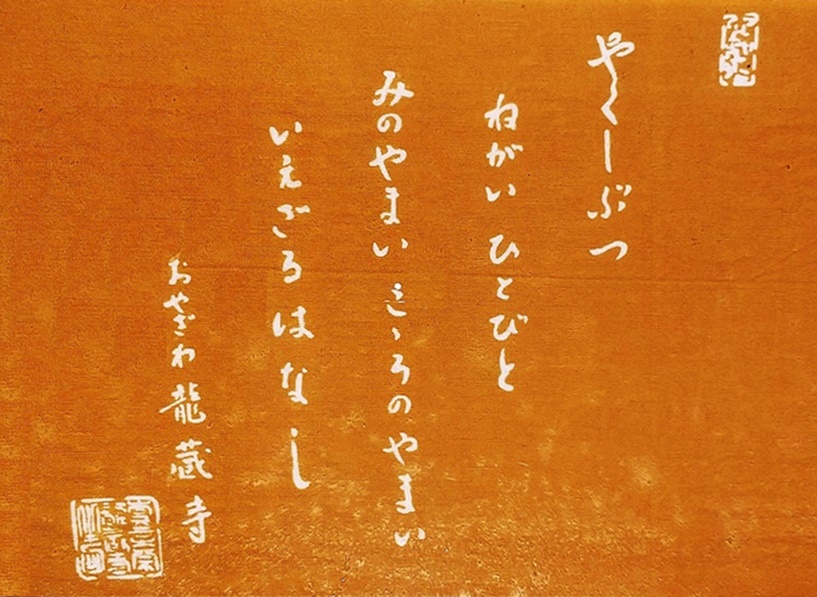 やくしぶつ
ねがい ひとびと
みのやまい こゝろのやまい
いえざるはなし
おやざわ龍蔵寺